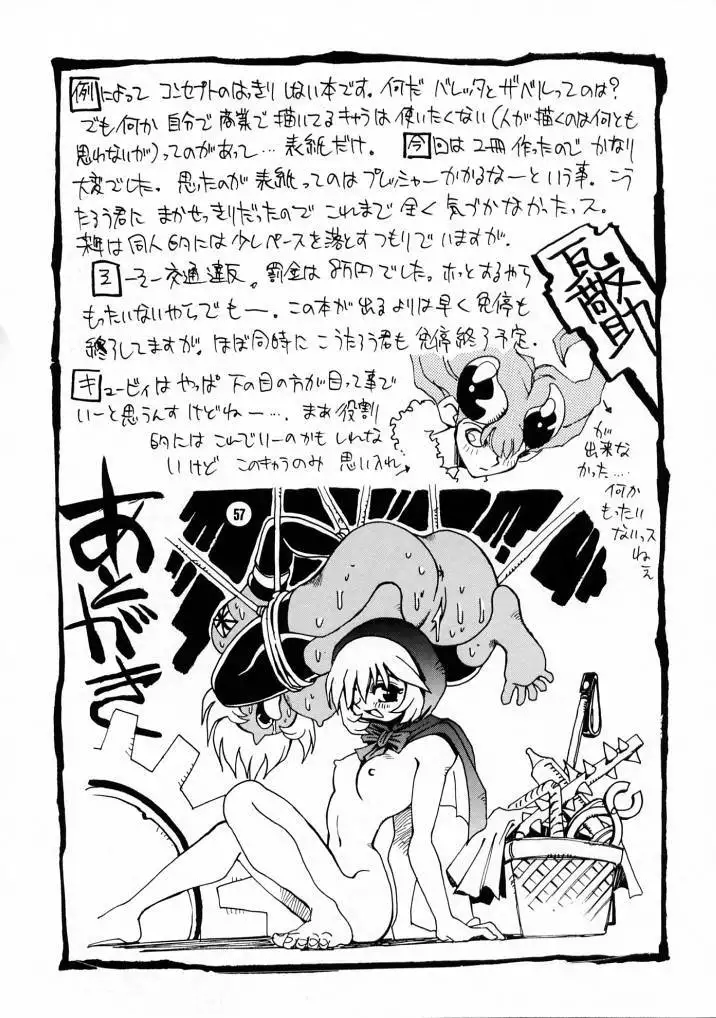 例によって コンセプトのはっきり しない本です。何だ バレッタとザベルってのは?
でも何か 自分で商業で描いてるキャラは使いたくない(人が描くのは何とも
思わないが)ってのがあって…表紙だけ。今回は2冊作ったのでかなり
大変でした。思ったのが表紙ってのはプレッシャーかかるなーという事。こう
たろう君に まかせっきりだったので これまで全く気づかなかったっス。
来年は同人的には少しペースを落とすつもりでいますが。
ミーそー交通違反。罰金は8万円でした。ホッとするやら
もったいないやらでもー。この本が出るよりは早く免停も
終了してますが。ほぼ同時に こうたろう君も免停終了予定.
キュービィはやっぱ下の目の方が目って事で
いーと思うんすけどねー…. まあ役割
的にはこれでいーのかもしれな
いけど このキャラのみ 思い入れ
が
出来な
かった….
何か
もったい
ないっス
ねぇ
助
あとがき
57